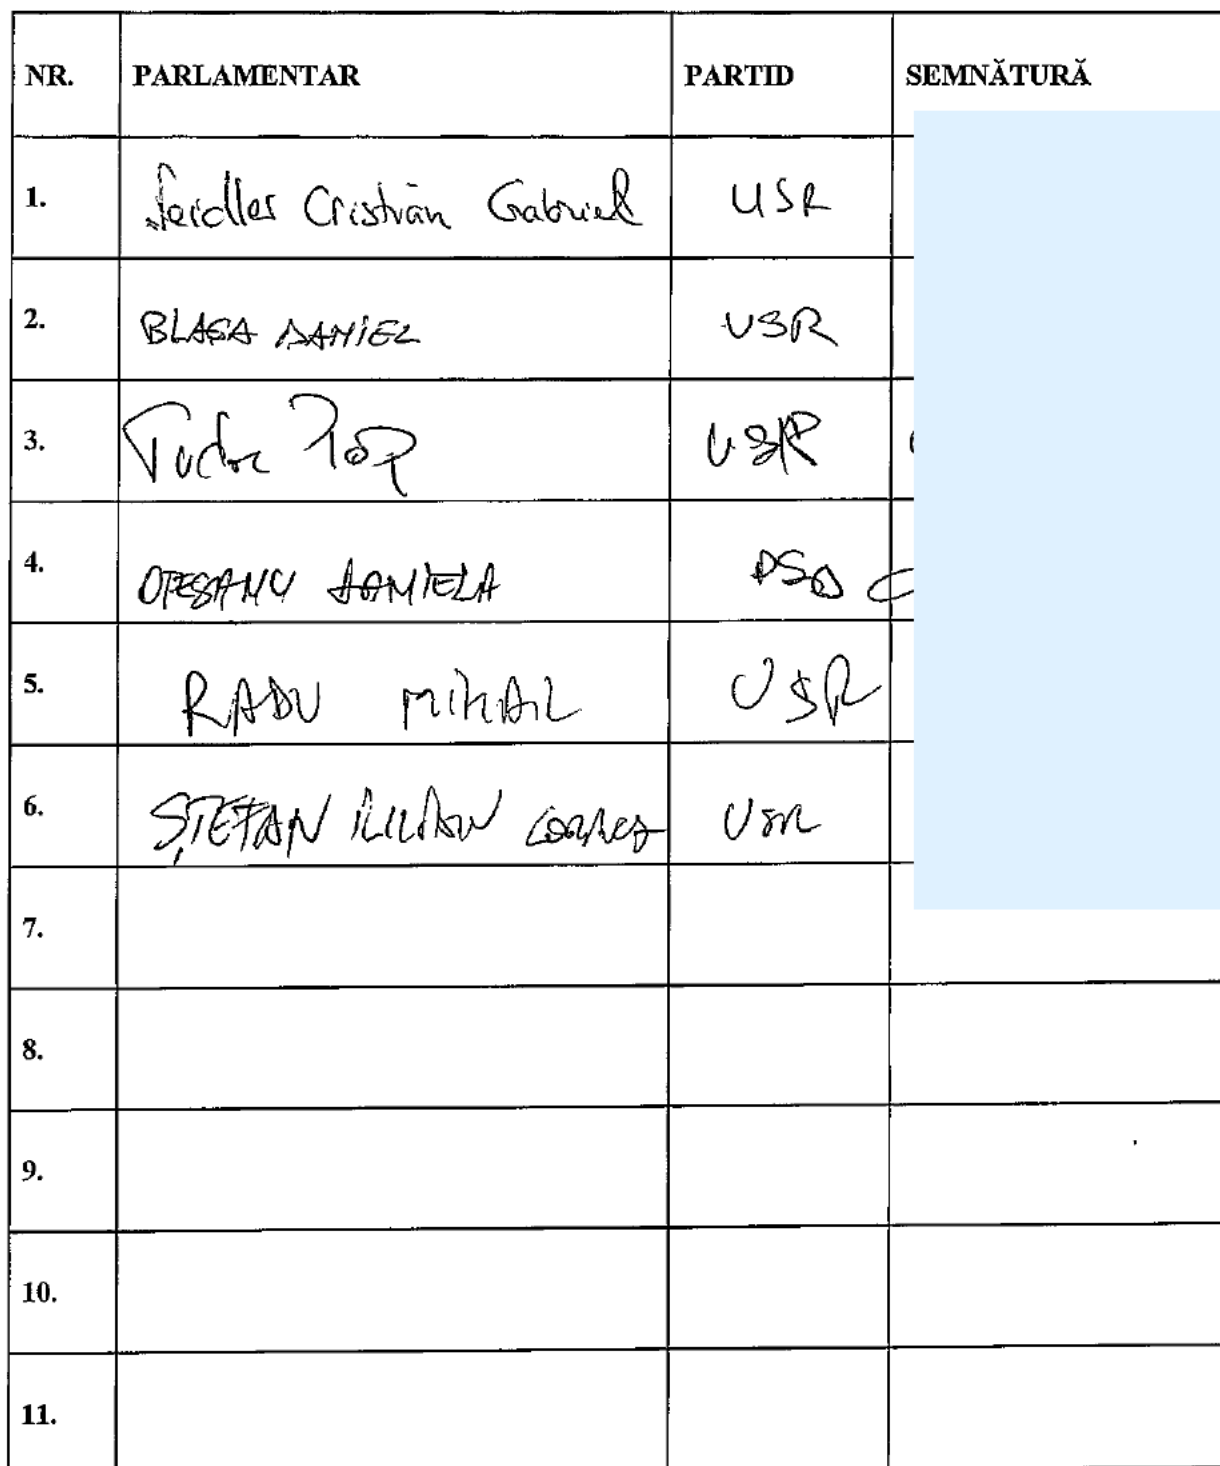 NR. PARLAMENTAR PARTID SEMNĂTURĂ
1. Seidler Cristian Gabriel USR
2. BLAGA DANIEL USR
3. Tudor Pop USR
4. OTEȘANU DANIELA PSD
5. RADU MIHAIL USR
6. ȘTEFAN IULIAN USR
7.
8.
9.
10.
11.